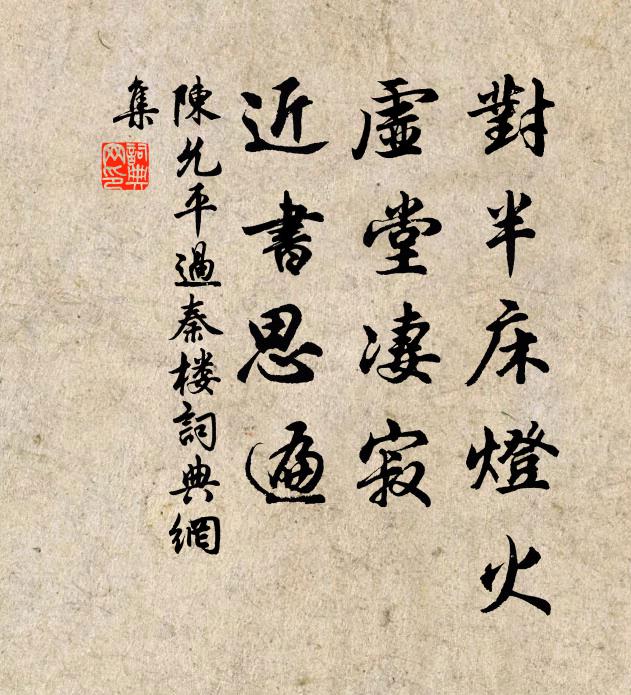 對半床燈火
虛堂凄寂
近書思遍
陳允平過秦楼詞典網
集
詞典
网印